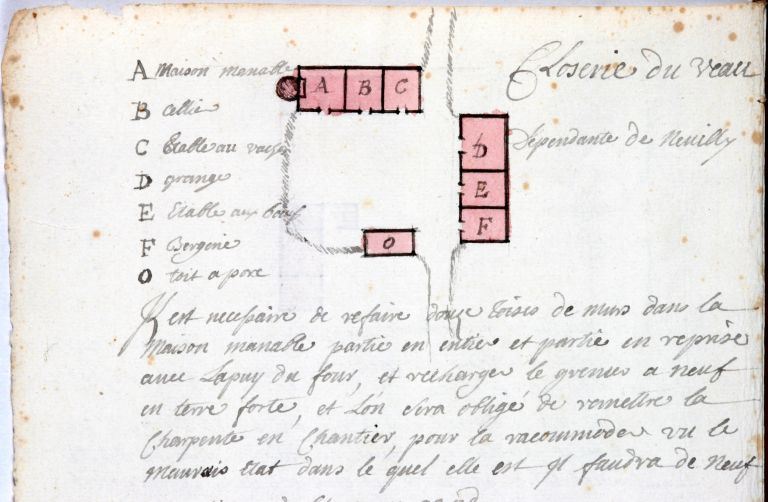 Closerie du veau
Dépendante de Neuilly
A Maison manable
B Cellie
C Etable au vaches
D grange
E Etable aux bœuf
F Bergerie
O toit a porc
A B C
D
E
F
O
Il est necessaire de refaire douze toises de murs dans la
Maison manable partie en entier et partie en reprise
avec Lapuy du four, et recharger le grenier a neuf
en terre forte, et L'on sera obligé de remettre la
Charpente en Chantier, pour la racommoder vu le
Mauvais Etat dans le quel elle est Il faudra de Neuf